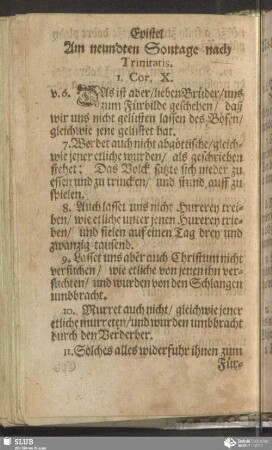 Epistel
Am neundten Sontage nach
Trinitatis.
1. Cor. X.
v. 6. DAs ist aber / lieben Brüder / uns
zum Fürbilde geschehen / daß
wir uns nicht gelüsten lassen des Bösen /
gleichwie jene gelüstet hat.
7. Werdet auch nicht abgöttische / gleich-
wie jener etliche wurden / als geschrieben
stehet: Das Volck satzte sich nieder zu
essen und zu trincken / und stund auff zu
spielen.
8. Auch lasset uns nicht Hurerey trei-
ben / wie etliche unter jenen Hurerey trie-
ben / und fielen auf einen Tag drey und
zwanzig tausend.
9. Lasset uns aber auch Christum nicht
versuchen / wie etliche von jenen ihn ver-
suchten / und wurden von den Schlangen
umbbracht.
10. Murret auch nicht / gleichwie jener
etliche murreten / und wurden umbbracht
durch den Verderber.
11. Solches alles widerfuhr ihnen zum
Für-
SLUB
Wir führen Wissen.